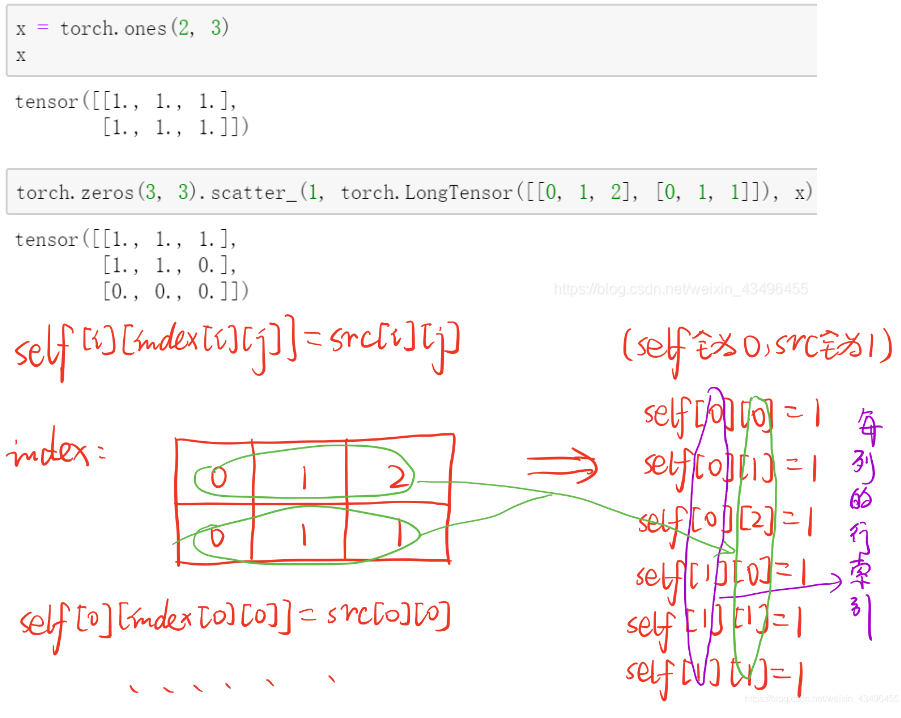 x = torch.ones(2, 3)
x
tensor([[1., 1., 1.],
[1., 1., 1.]])
torch.zeros(3, 3).scatter_(1, torch.LongTensor([[0, 1, 2], [0, 1, 1]]), x)
tensor([[1., 1., 1.],
[1., 1., 0.],
[0., 0., 0.]])
https://blog.csdn.net/weixin_43496455
self[i][index[i][j]]=src[i][j]
(self全为0,src全为1)
index:
0 1 2
0 1 1
self[0][index[0][0]]=src[0][0]
、、、、、、
self[0][0]=1
self[0][1]=1
self[0][2]=1
self[1][0]=1
self[1][1]=1
self[1][1]=1
每列的行索引
https://blog.csdn.net/weixin_43496455